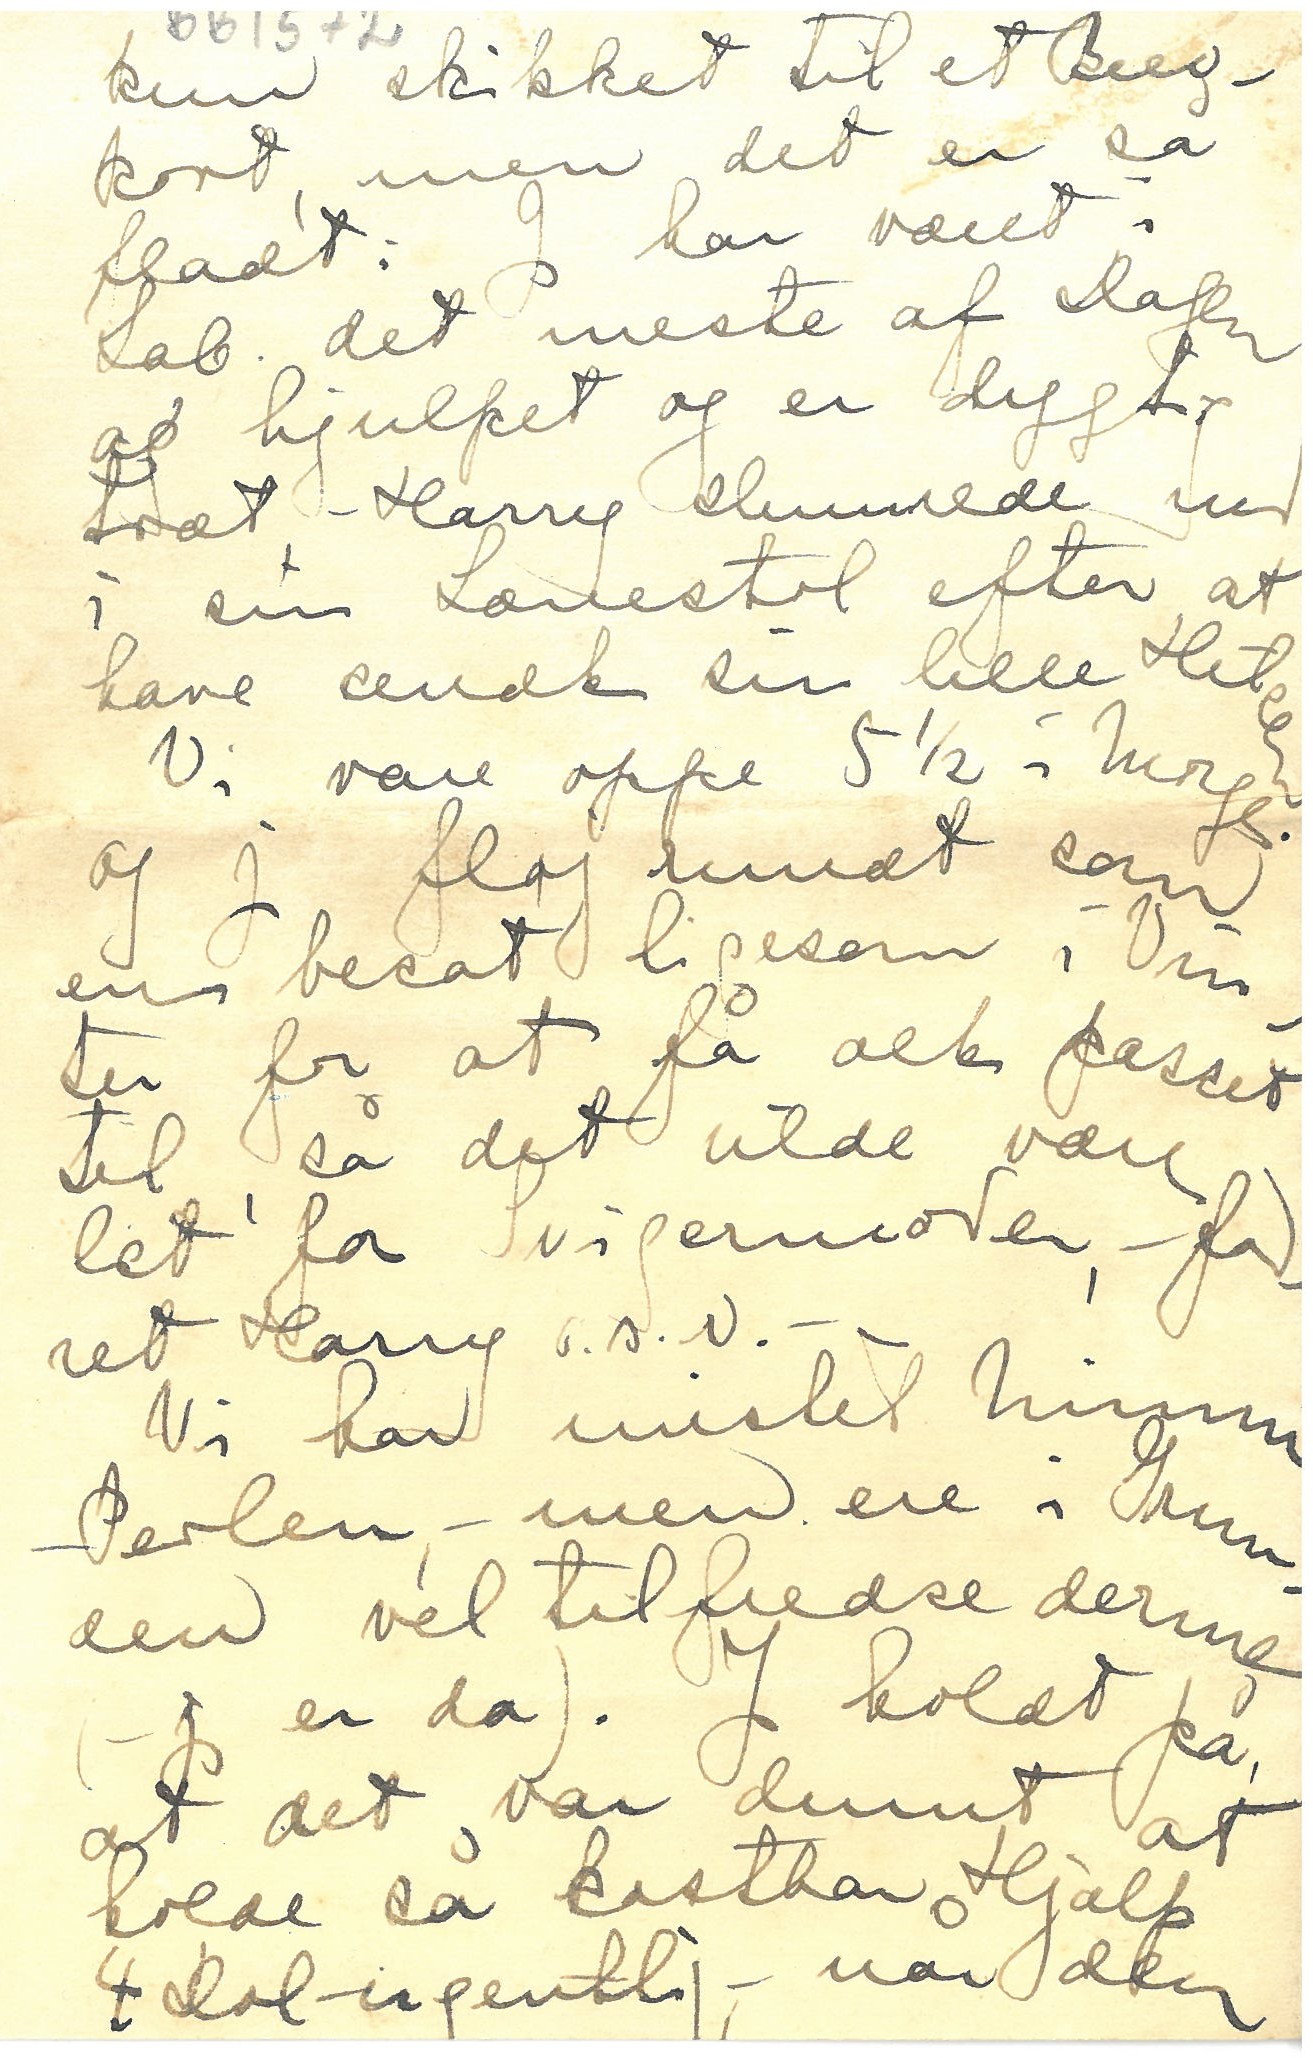 BB1572
kun skikket til et Brev-
kort, men det er så
fladt: J har været i
Lab. det meste af Dagen
og hjulpet og er dygtig
træt, – Harry slumrede ind
i sin Lænestol efter at
have sendt sin lille Hilsen.
Vi vare oppe 5 1/2 i Morges.
og j fløj rundt som
en besat ligesom i Vin-
ter for at få alt passet
til, så det vilde være
let for Svigermoder, – fod-
ret Harry o.s.v. – –
Vi har mistet Minni
– Perlen, – men ere i Grun-
den vel tilfredse dermed
(– j er da). J holdt på,
at det var dumt at
holde så kostbar Hjælp
4 Dol-ugentli, – når den